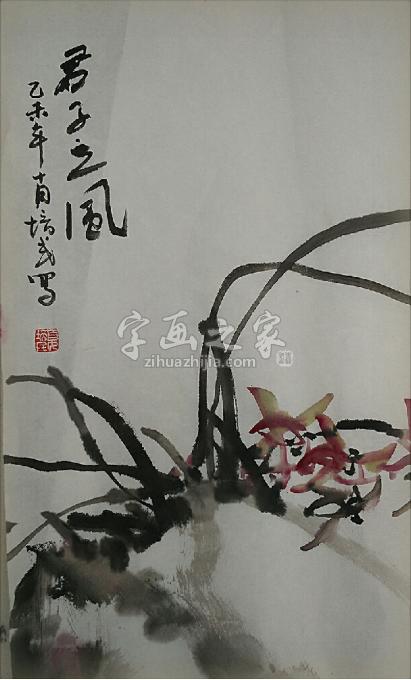 君子之风
乙未年十月培戎写
字画之家
zihuazhijia.com